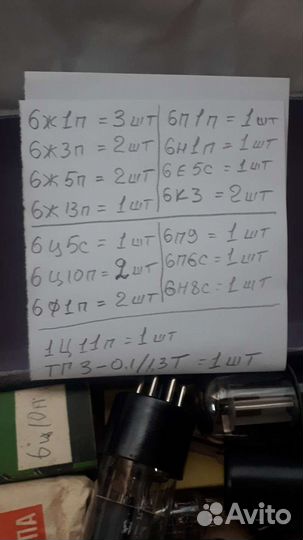 6Ж1п = 3шт
6Ж3п = 2шт
6Ж5п = 2шт
6Ж13п = 1шт
6П1п = 1шт
6Н1п = 1шт
6Е5с = 1шт
6К3 = 2шт
6Ц5с = 1шт
6Ц10п = 2шт
6Ф1п = 2шт
6П9 = 1шт
6П6с = 1шт
6Н8с = 1шт
1Ц11п = 1шт
ТПЗ-0.1/1,3Т = 1шт
6Ц10п
ПА
Avito